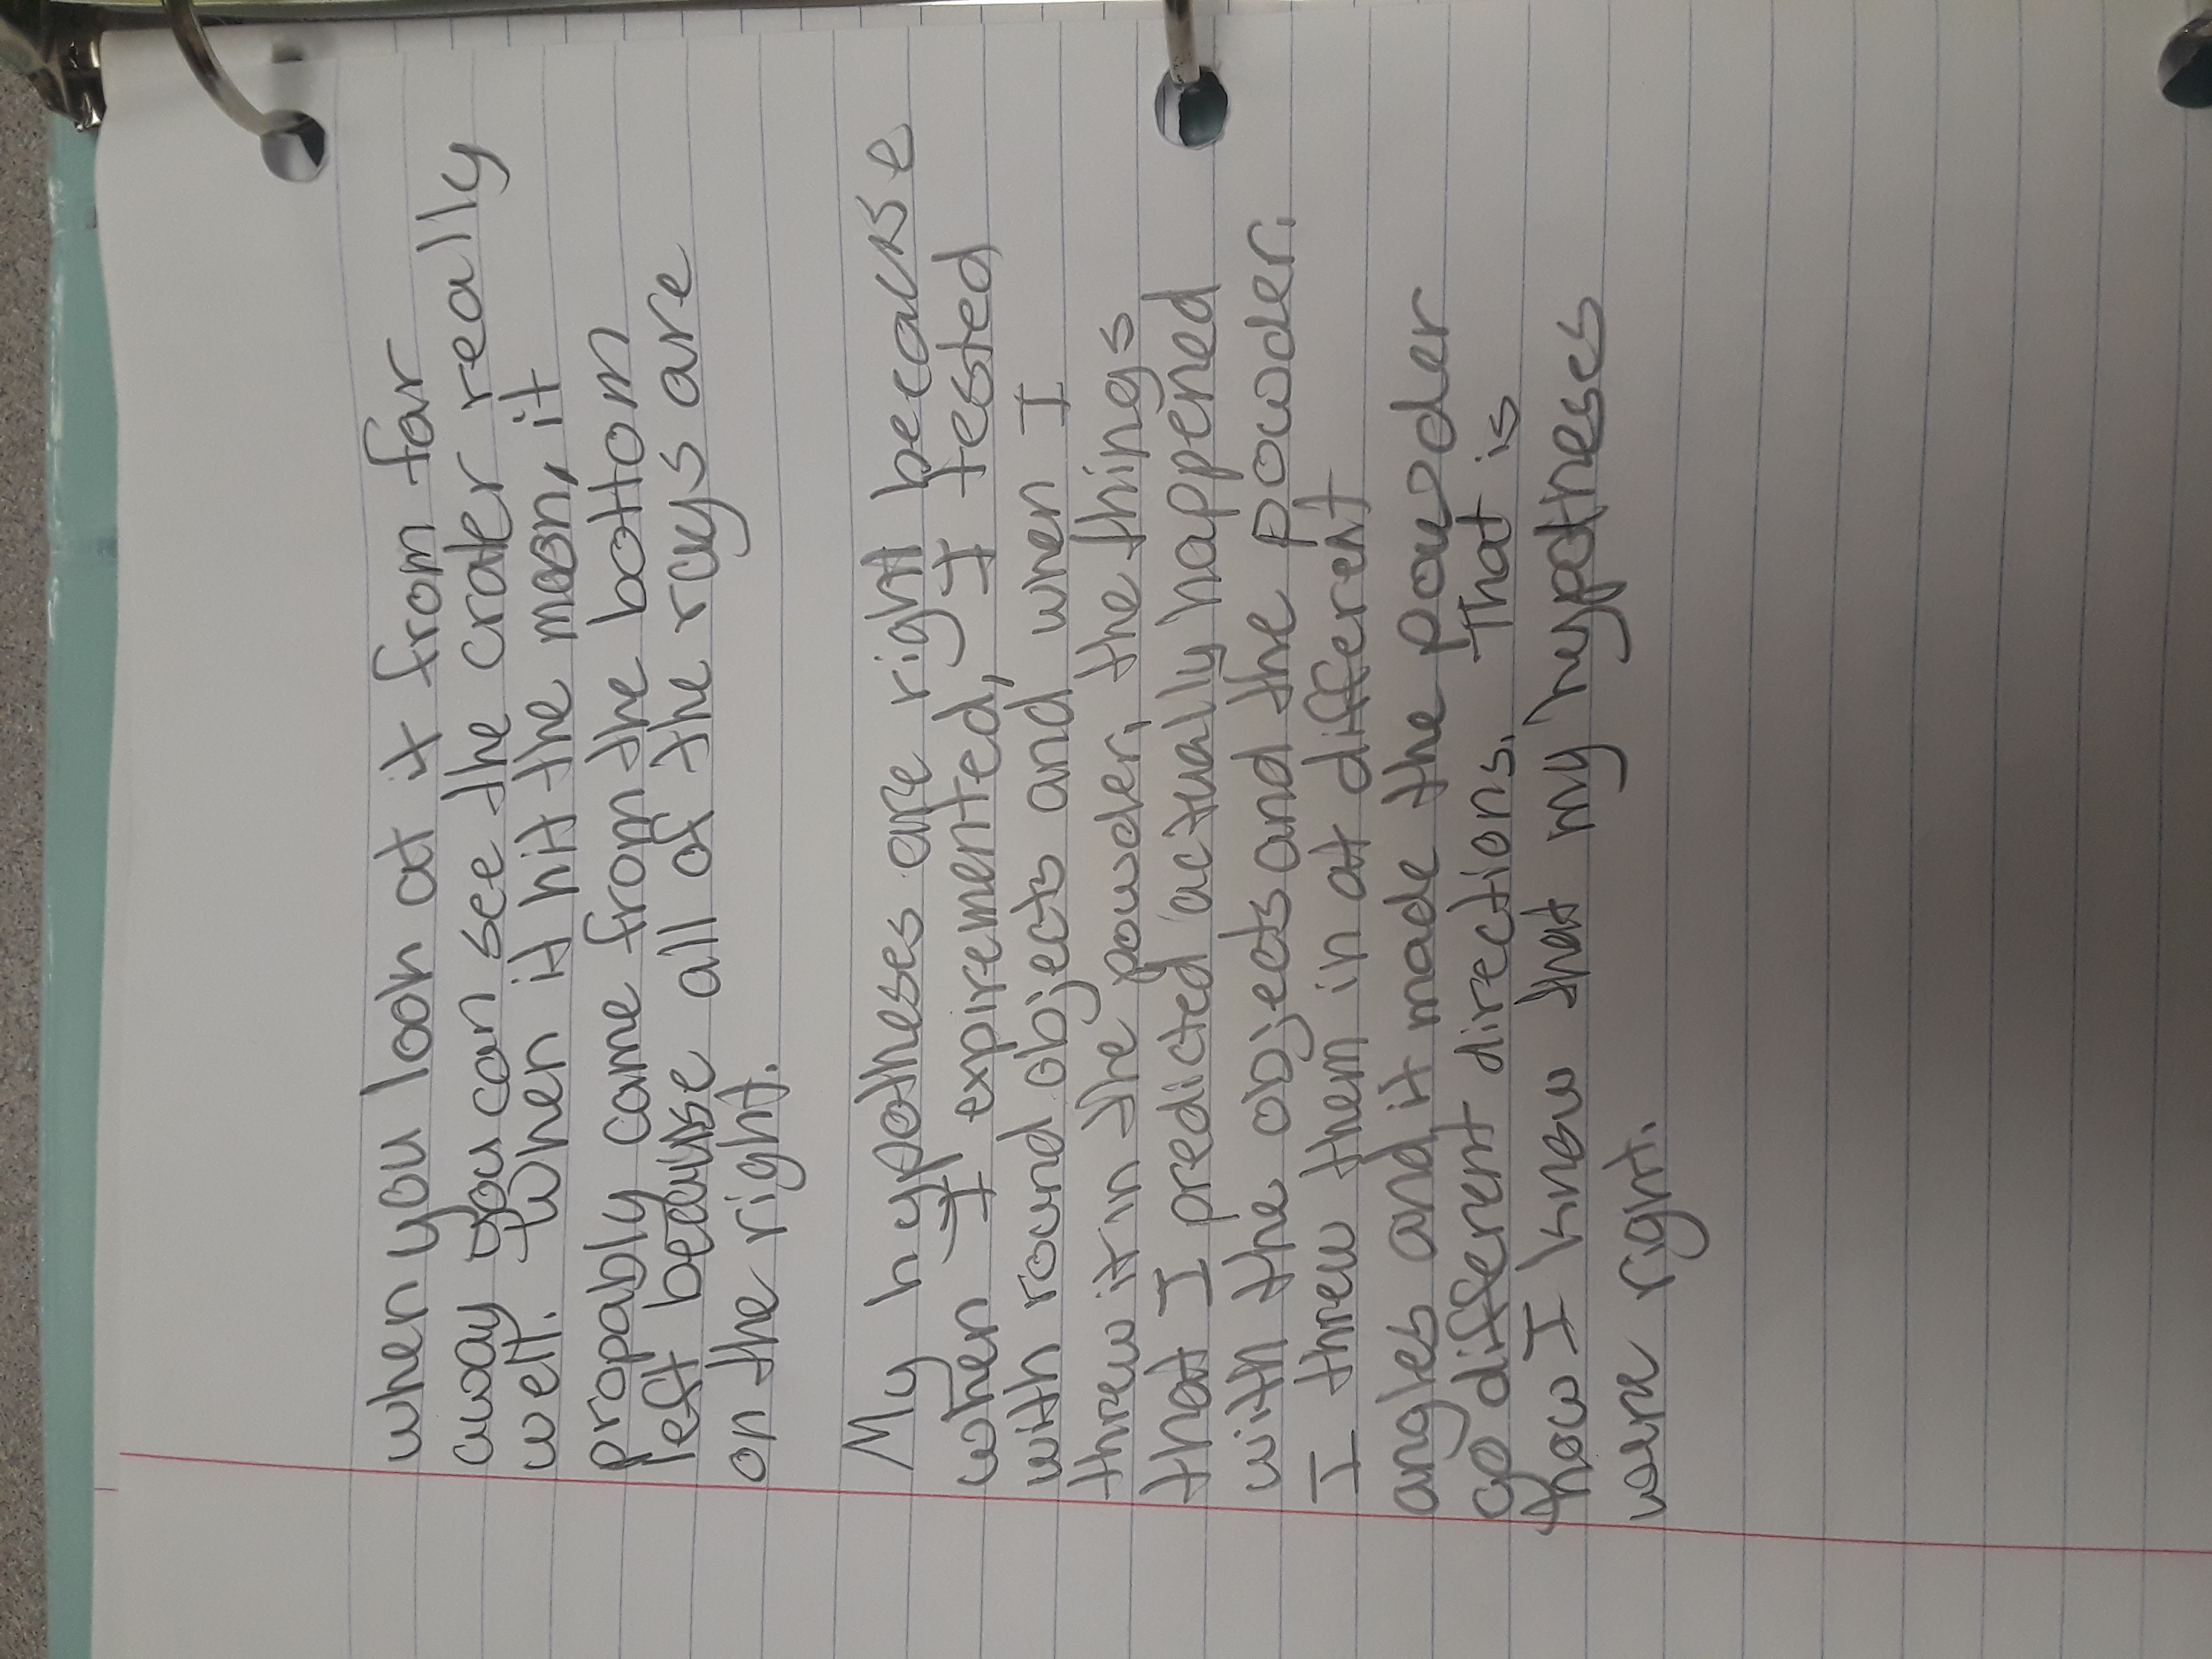 when you look at it from far
away you can see the crater really
well. When it hit the moon, it
propably came from the bottom
left because all of the rays are
on the right.
My hypotheses are right because
when I expiremented, I tested
with round objects and when I
threw it in the powder, the things
that I predicted actually happened
with the objects and the powder.
I threw them in at different
angles and it made the powder
go different directions. That is
how I know that my hypotheses
were right.